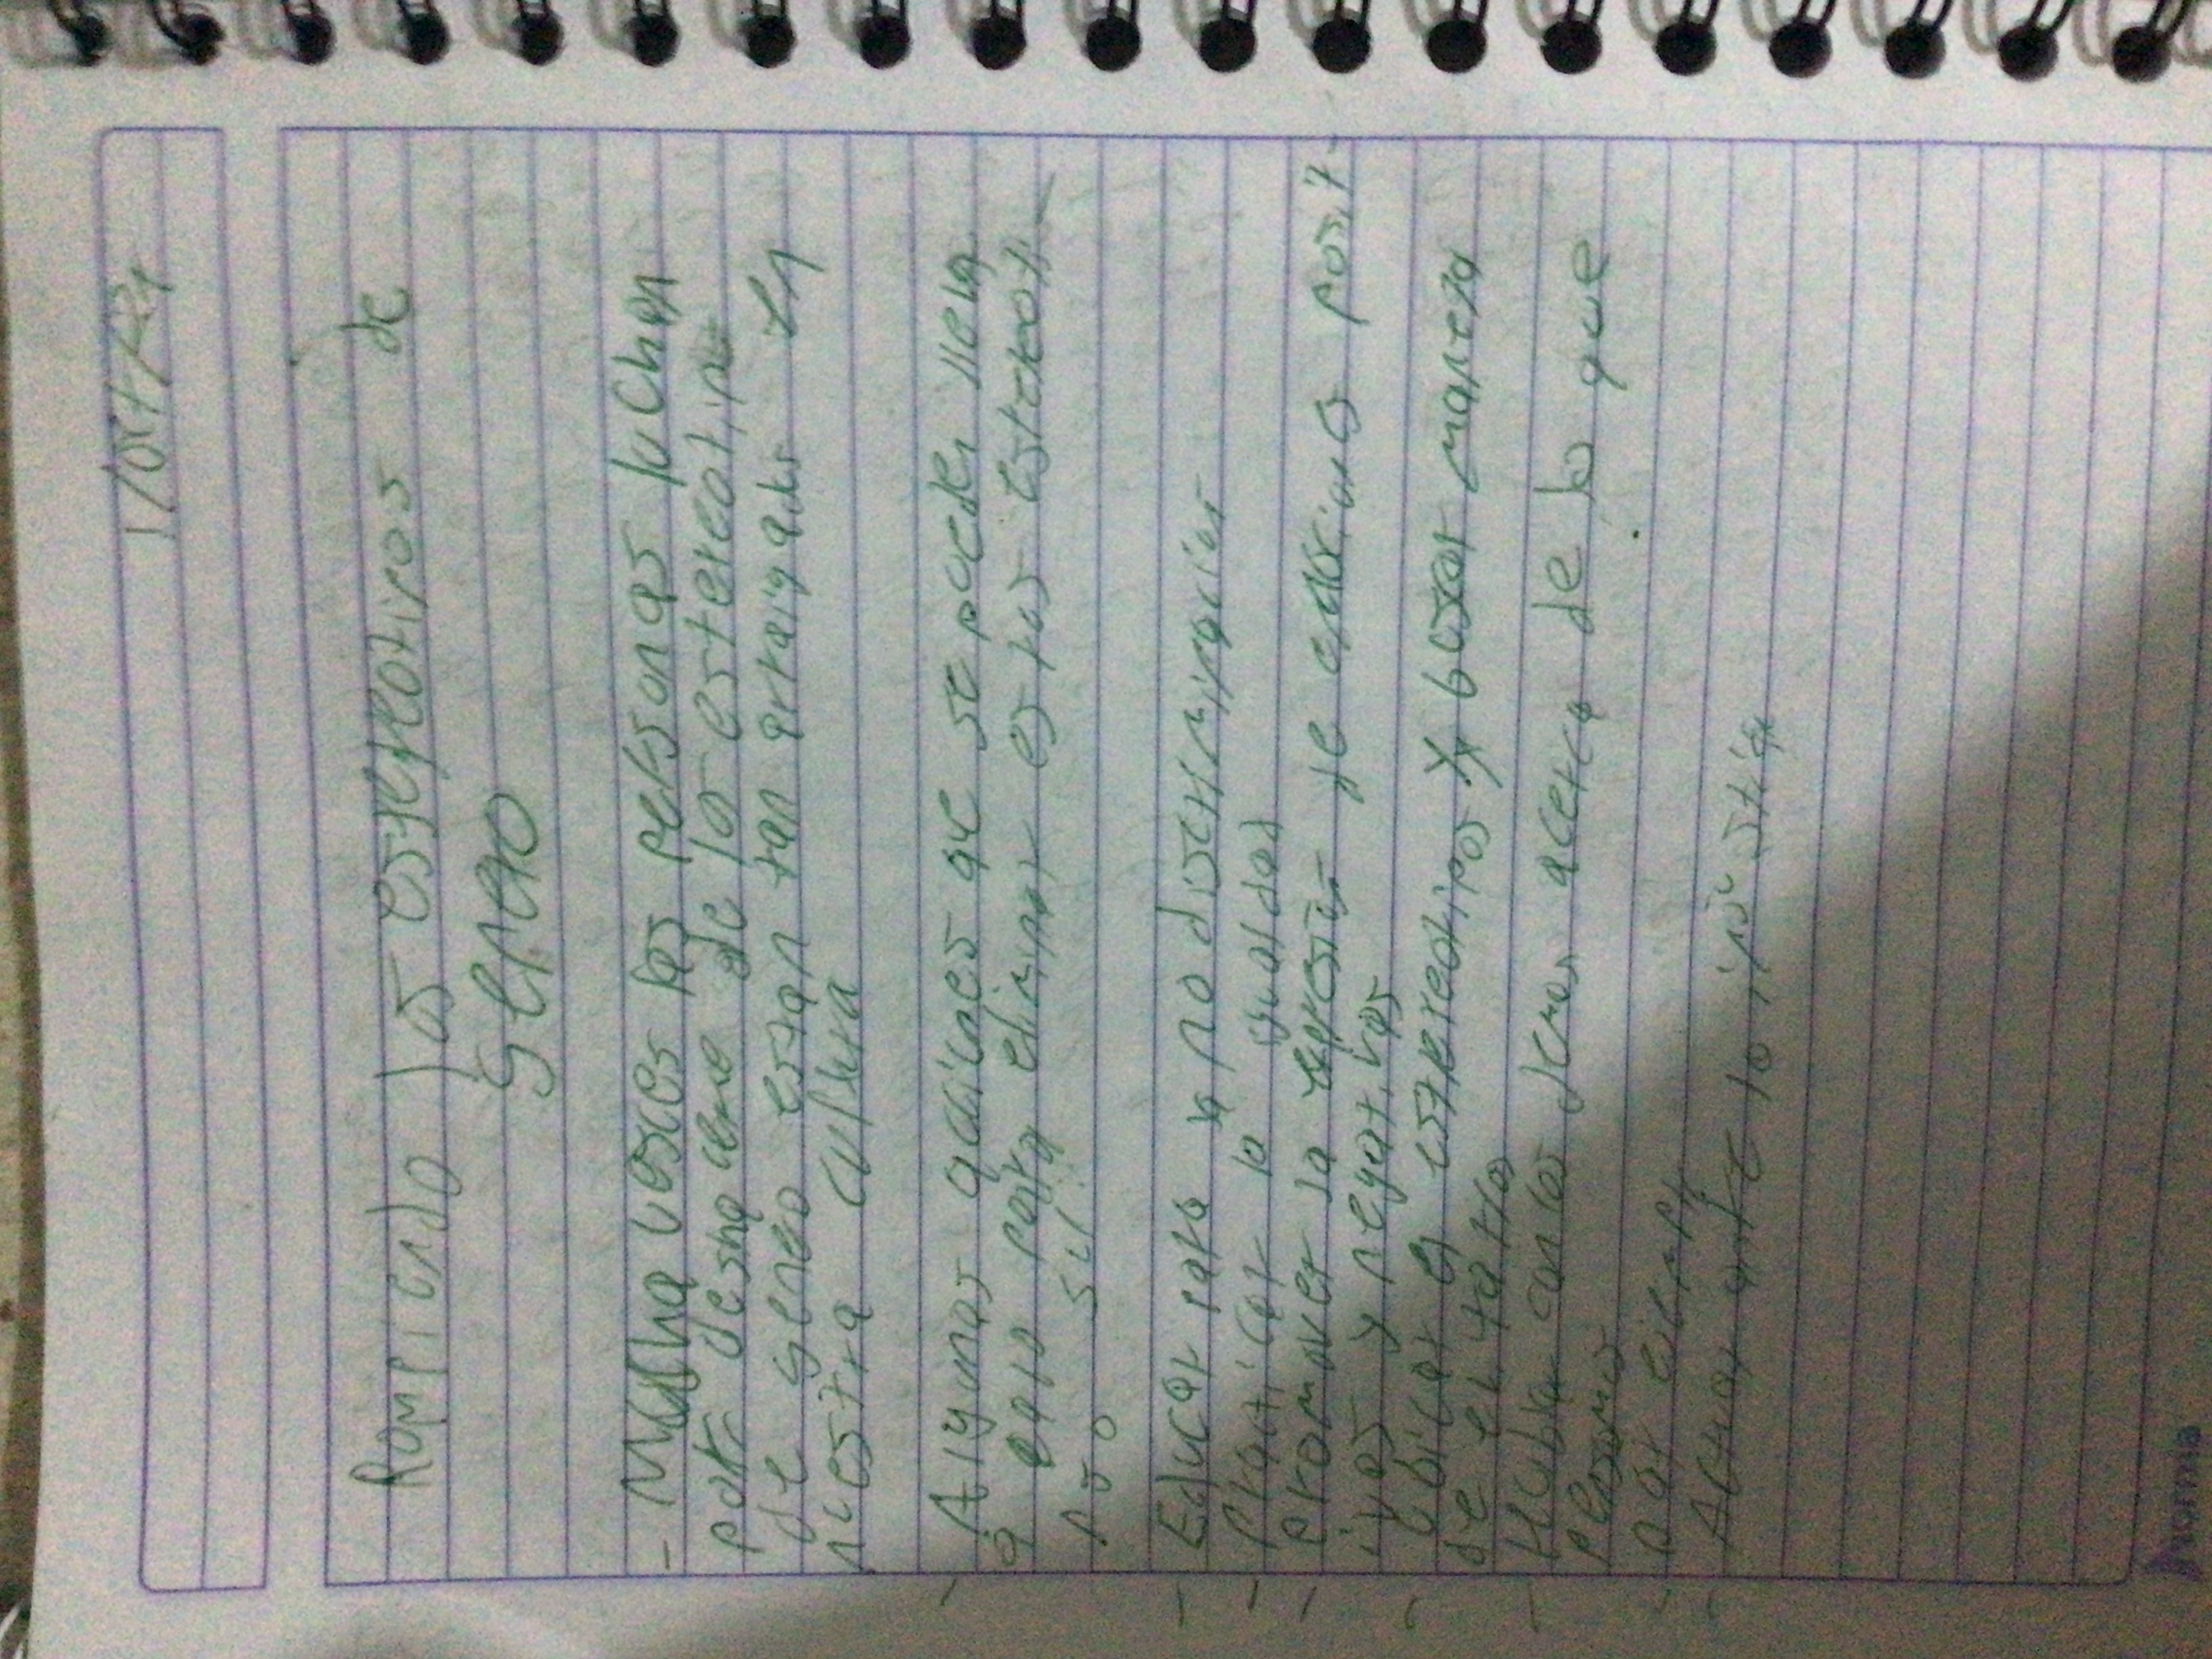 Rompiendo los estereotipos de
Genero
- Mucha veces las personas luchan
por deshacerme de los estereotipo
de genero estan tan arraigados en
nuestra cultura
- Algunas acciones que se pueden llevar
a cabo para eliminar estos estereoti-
- Educar para la no discriminacion
- Practicar la igualdad
- Promover la expresión de emociones posit-
ivas y negativas
- ubicar el estereotipos y buscar manera
Hablar con los demas acerca de lo que
- Dar ejemplo
- Actuar ante la injustia
norma